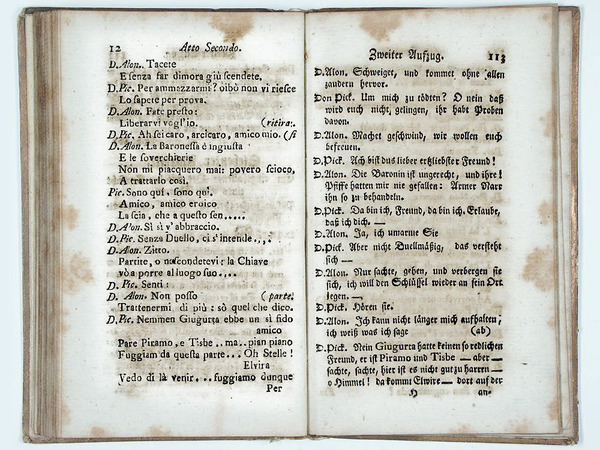 12 Atto Secondo.
D. Alon. Tacete
E senza far dimora giù scendete.
D. Pic. Per ammazzarmi? oibò non vi riesce
Lo sapete per prova.
D. Alon. Fate presto:
Liberarvi vogl'io. (ritira.
D. Pic. Ah sei caro, arcicaro, amico mio. (si
D. Alon. La Baronessa è ingiusta
E le soverchierie
Non mi piacquero mai: povero sciocco,
A trattarlo così.
Pic. Sono quì, sono quì.
Amico, amico eroico
Lascia, che a questo sen.....
D. A'on. Sì sì v'abbraccio.
D. Pic. Senza Duello, ci s'intende....
D. Alon. Zitto.
Partite, o nascondetevi: la Chiave
vò a porre al luogo suo....
D. Pic. Senti:
D. Alon. Non posso (parte.
Trattenermi di più: sò quel che dico.
D. Pic. Nemmen Giugurta ebbe un sì fido
amico
Pare Piramo, e Tisbe.. ma.. pian piano
Fuggiam da questa parte... Oh Stelle!
Elvira
Vedo di là venir... fuggiamo dunque
Per
Zweiter Aufzug. 113
D. Alon. Schweiget, und kommet ohne allen
zaudern hervor.
Don Pick. Um mich zu tödten? O nein daß
wird euch nicht, gelingen, ihr habt Proben
davon.
D. Alon. Machet geschwind, wir wollen euch
befreuen.
D. Pick. Ach bist du s lieber ertzliebster Freund!
D. Alon. Die Baronin ist ungerecht, und ihre!
Pfiffe hatten mir nie gefallen: Armer Narr
ihn so zu behandeln.
D. Pick. Da bin ich, Freund, da bin ich. Erlaube,
daß ich dich. —
D. Alon. Ja, ich umarme Sie
D. Pick. Aber nicht Duellmäßig, das versteht
sich —
D. Alon. Nur sachte, gehen, und verbergen sie
sich, ich will den Schlüssel wieder an sein Ort
legen. —
D. Pick. Hören sie.
D. Alon. Ich kann nicht länger mich aufhalten,
ich weiß was ich sage (ab)
D. Pick. Mein Giugurta hatte keinen so redlichen
Freund, er ist Piramo und Tisbe — aber —
sachte, sachte, hier ist es nicht gut zu harren —
o Himmel! da kommt Elwire — dort auf der
H an-